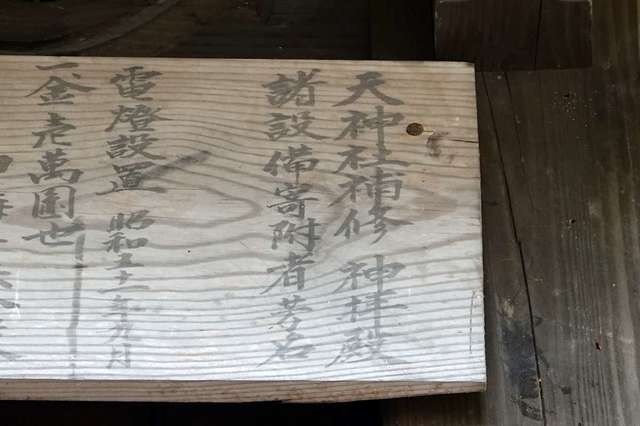 天神社補修 神拝殿
諸設備寄附者芳名
電燈設置 昭和五十一年九月
一金壱萬圓也